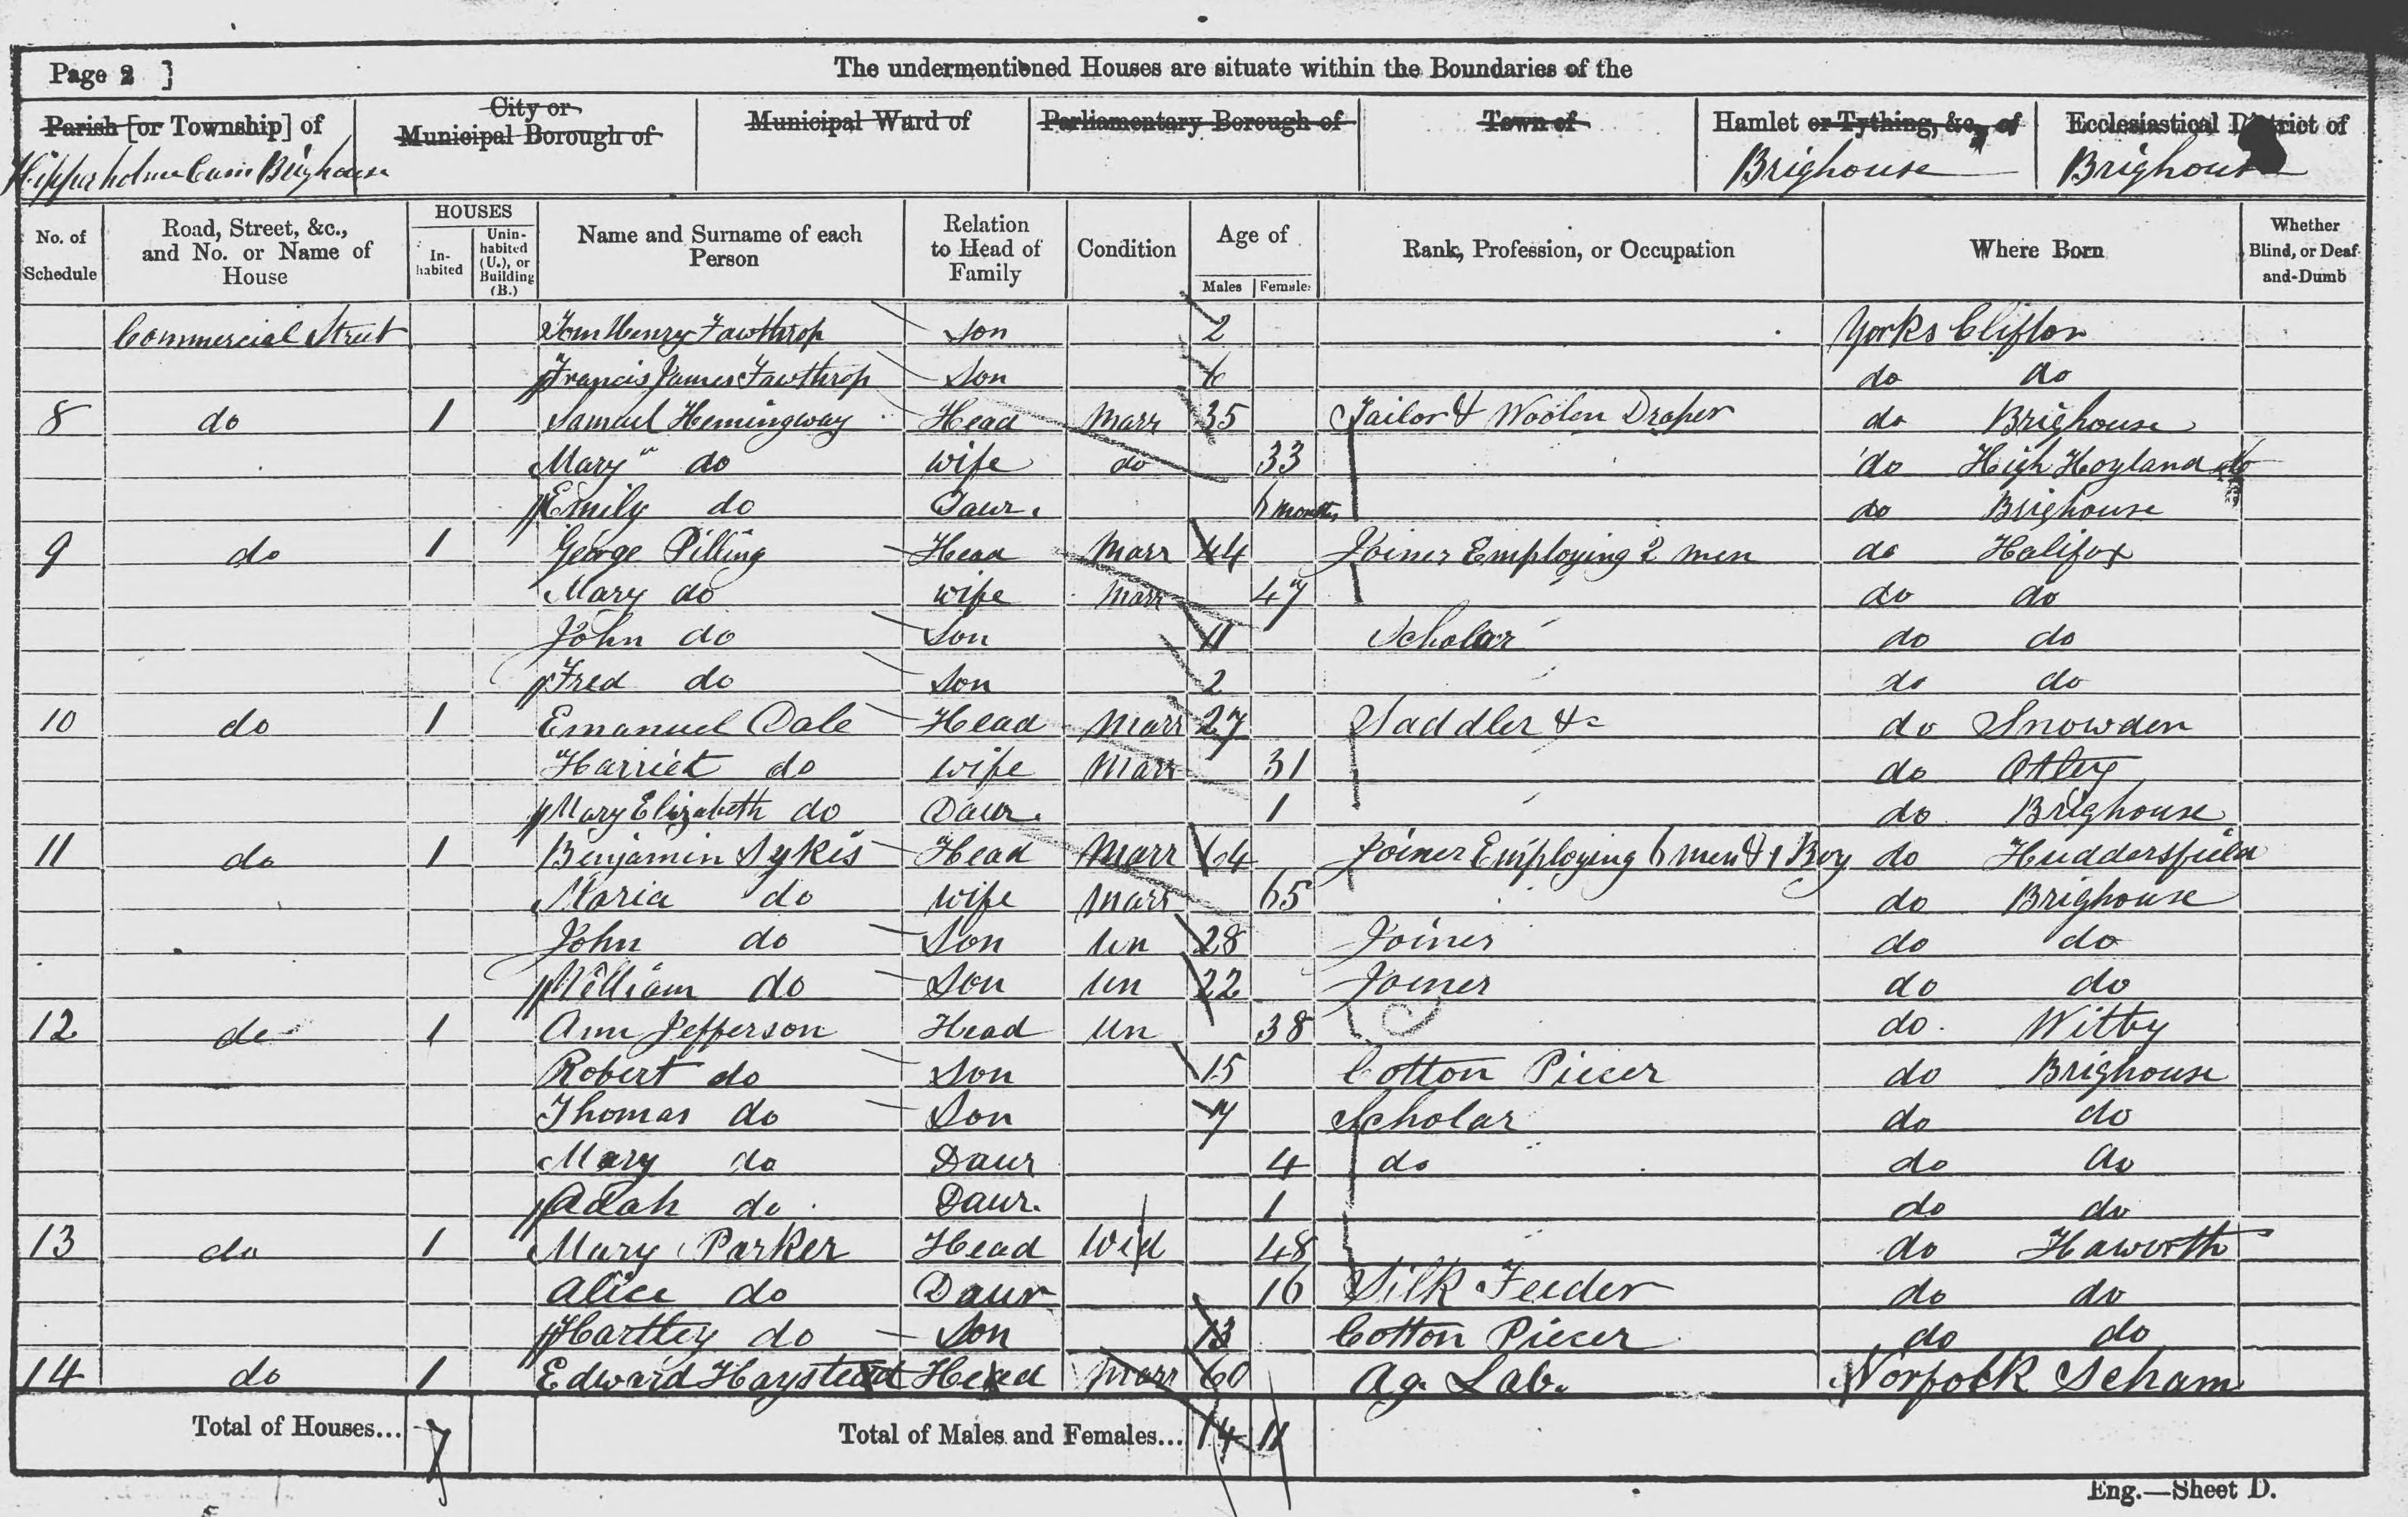 Page 2 ]
The undermentioned Houses are situate within the Boundaries of the
Parish [or Township] of
City or Municipal Borough of
Municipal Ward of
Parliamentary Borough of
Town of
Hamlet or Tything, &c., of
Ecclesiastical District of
Hipperholme Cum Brighouse
Brighouse
Brighouse
No. of Schedule
Road, Street, &c., and No. or Name of House
HOUSES
In-habited
Unin-habited (U.), or Building (B.)
Name and Surname of each Person
Relation to Head of Family
Condition
Age of
Males
Females
Rank, Profession, or Occupation
Where Born
Whether Blind, or Deaf-and-Dumb
Commercial Street Tom Henry Fawthrop Son 2 Yorks Clifton
Francis James Fawthrop Son do do
8 do 1 Samuel Hemingway Head Marr 35 Tailor & Woolen Draper do Brighouse
Mary do Wife do 33 do High Hoyland
Emily do Daur. 6 months do Brighouse
9 do 1 George Pilling Head Marr 44 Joiner Employing 2 men do Halifax
Mary do Wife Marr 47 do do
John do Son 11 Scholar do do
Fred do Son 2 do do
10 do 1 Emanuel Dale Head Marr 27 Saddler &c do Snowden
Harriet do Wife Marr 31 do Otley
Mary Elizabeth do Daur. 1 do Brighouse
11 do 1 Benjamin Sykes Head Marr 64 Joiner Employing 6 men & 1 Boy do Huddersfield
Maria do Wife Marr 65 do Brighouse
John do Son Un 28 Joiner do do
William do Son Un 22 Joiner do do
12 do 1 Ann Jefferson Head Un 38 do Witby
Robert do Son 15 Cotton Piecer do Brighouse
Thomas do Son 7 Scholar do do
Mary do Daur 4 do do do
Adah do Daur. 1 do do
13 do 1 Mary Parker Head Wid 48 do Haworth
Alice do Daur 16 Silk Feeder do do
Hartley do Son 13 Cotton Piecer do do
14 do 1 Edward Haystead Head Marr 60 Ag. Lab. Norfolk Scham
Total of Houses... 7 Total of Males and Females... 14 11
Eng.—Sheet D.